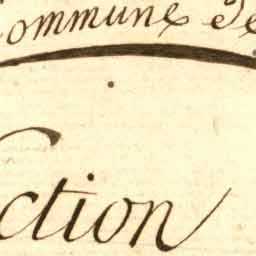 Commune de
ction